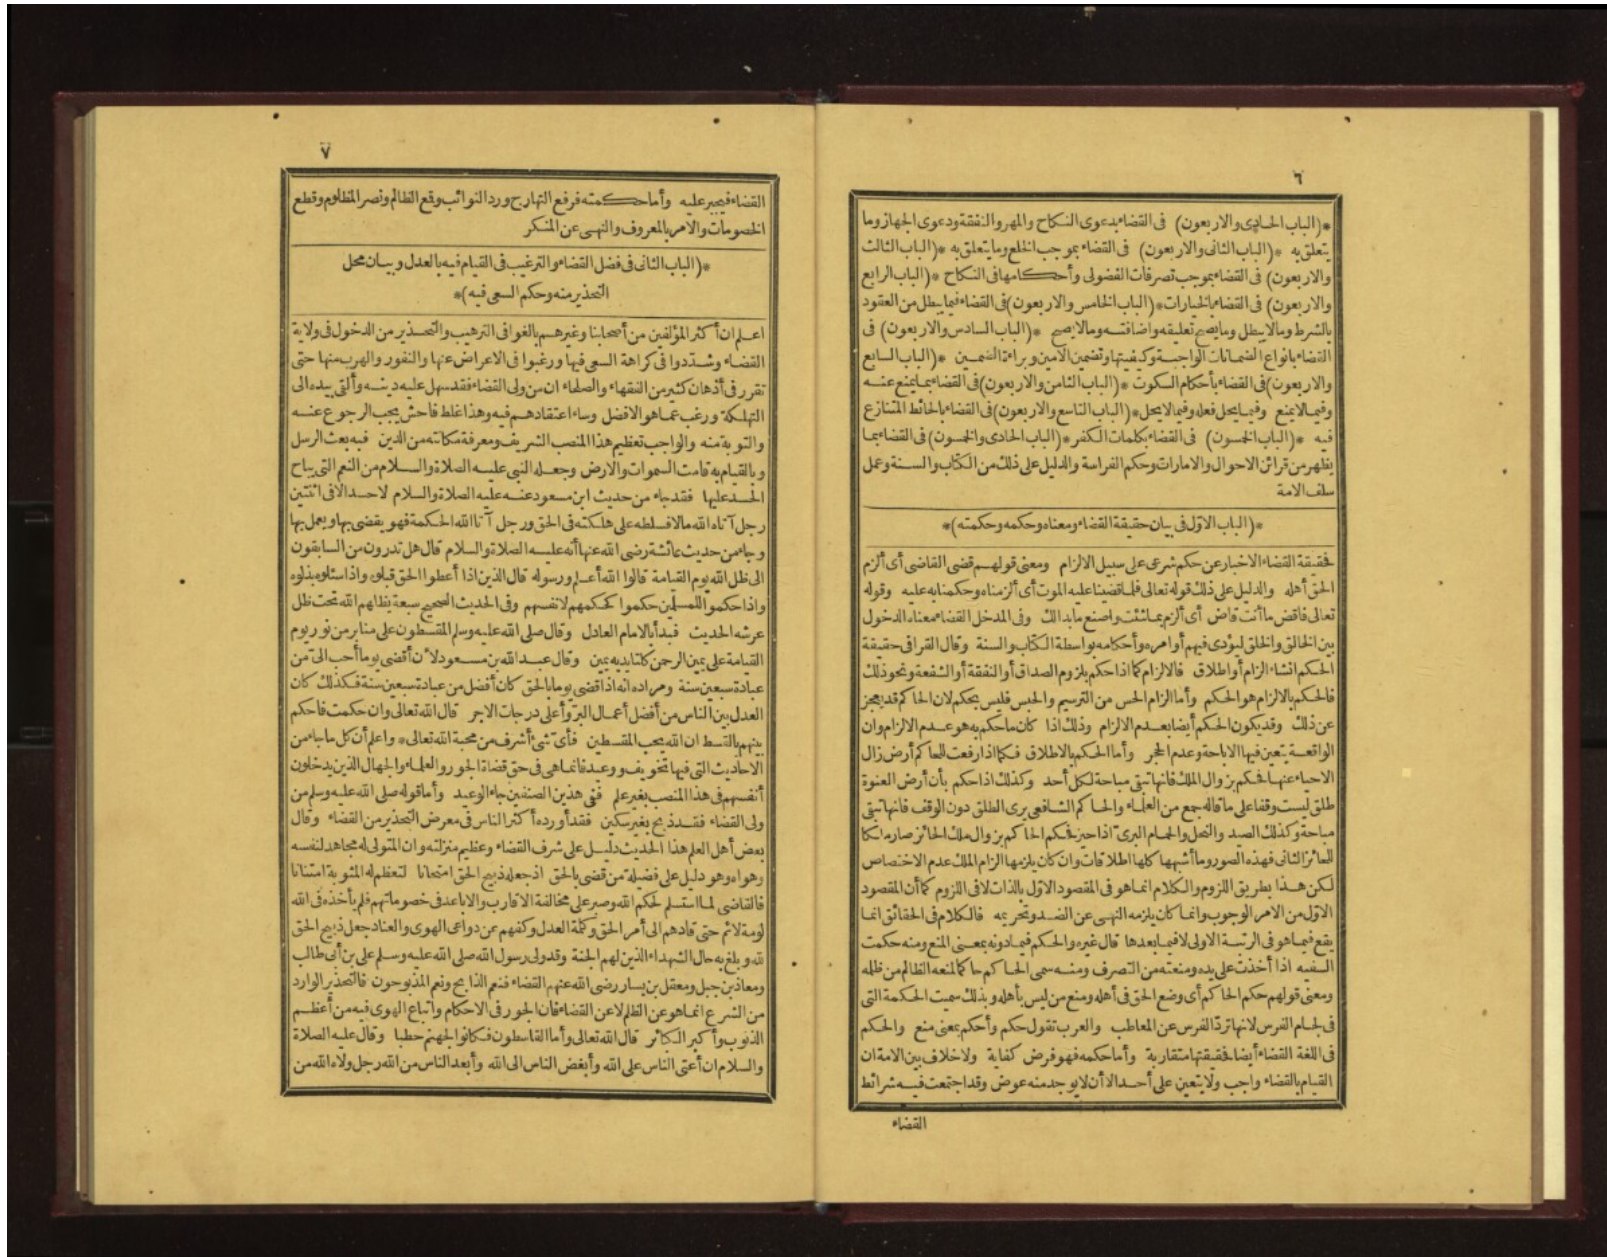 ٦
*(الباب الحادى والاربعون) فى القضاء بدعوى النكاح والمهر والنفقة ودعوى الجهاز وما
يتعلق به *(الباب الثانى والاربعون) فى القضاء بموجب الخلع وما يتعلق به *(الباب الثالث
والاربعون) فى القضاء بموجب تصرفات الفضولى وأحكامها فى النكاح *(الباب الرابع
والاربعون) فى القضاء بالخيارات *(الباب الخامس والاربعون) فى القضاء فيما يبطل من العقود
بالشرط وما لا يبطل وما يصح تعليقه واضافته وما لا يصح *(الباب السادس والاربعون) فى
القضاء بانواع الضمانات الواجبة وكيفيتها وتضمين الامين وبراءة الضمين *(الباب السابع
والاربعون) فى القضاء بأحكام السكوت *(الباب الثامن والاربعون) فى القضاء بما يمنع عنه
وفيما لا يمنع وفيما يحل فعله وفيما لا يحل *(الباب التاسع والاربعون) فى القضاء بالحائط المتنازع
فيه *(الباب الخمسون) فى القضاء بكلمات الكفر *(الباب الحادى والخمسون) فى القضاء بما
يظهر من قرائن الاحوال والامارات وحكم الفراسة والدليل على ذلك من الكتاب والسنة وعمل
سلف الامة
*(الباب الاول فى بيان حقيقة القضاء ومعناه وحكمه وحكمته)*
فحقيقة القضاء الاخبار عن حكم شرعى على سبيل الالزام ومعنى قولهم قضى القاضى أى ألزم
الحق أهله والدليل على ذلك قوله تعالى فلما قضينا عليه الموت أى ألزمناه وحكمنا به عليه وقوله
تعالى فاقض ما أنت قاض أى ألزم بما شئت واصنع ما بدا لك وفى المدخل القضاء معناه الدخول
بين الخالق والخلق ليؤدى فيهم أوامره وأحكامه بواسطة الكتاب والسنة وقال القرافى حقيقة
الحكم انشاء الزام أو اطلاق فالالزام كما اذا حكم بلزوم الصداق أو النفقة أو الشفعة ونحو ذلك
فالحكم بالالزام هو الحكم وأما الزام الحس من الترسيم والحبس فليس بحكم لان الحاكم قد يعجز
عن ذلك وقد يكون الحكم أيضا بعدم الالزام وذلك اذا كان ما حكم به هو عدم الالزام وان
الواقعة يتعين فيها الاباحة وعدم الحجر وأما الحكم بالاطلاق فكما اذا رفعت للحاكم أرض زال
الاحياء عنها فحكم بزوال الملك فانها تبقى مباحة لكل أحد وكذلك اذا حكم بأن أرض العنوة
طلق ليست وقفا على ما قاله جمع من العلماء والحاكم الشافعى يرى الطلق دون الوقف فانها تبقى
مباحة وكذلك الصيد والنحل والحمام البرى اذا حيز فحكم الحاكم بزوال ملك الحائز صار ملكا
للحائز الثانى فهذه الصور وما أشبهها كلها اطلاقات وان كان يلزمها الزام الملك عدم الاختصاص
لكن هذا بطريق اللزوم والكلام انما هو فى المقصود الاول بالذات لا فى اللزوم كما أن المقصود
الاول من الامر الوجوب وانما كان يلزمه النهى عن الضد وتحريمه فالكلام فى الحقائق انما
يقع فيما هو فى الرتبة الاولى لا فيما بعدها قال غيره والحكم فى مادته بمعنى المنع ومنه حكمت
السفيه اذا أخذت على يده ومنعته من التصرف ومنه سمى الحاكم حاكما لمنعه الظالم من ظلمه
ومعنى قولهم حكم الحاكم أى وضع الحق فى أهله ومنع من ليس بأهله وبذلك سميت الحكمة التى
فى لجام الفرس لانها ترد الفرس عن المعاطب والعرب تقول حكم وأحكم بمعنى منع والحكم
فى اللغة القضاء أيضا فحقيقتها متقاربة وأما حكمه فهو فرض كفاية ولا خلاف بين الامة ان
القيام بالقضاء واجب ولا يتعين على أحد الا أن لا يوجد منه عوض وقد اجتمعت فيه شرائط
القضاء
٧
القضاء فيجبر عليه وأما حكمته فرفع التهارج ورد النوائب وقمع الظالم ونصر المظلوم وقطع
الخصومات والامر بالمعروف والنهى عن المنكر
*(الباب الثانى فى فضل القضاء والترغيب فى القيام فيه بالعدل وبيان محل
التحذير منه وحكم السعى فيه)*
اعلم ان أكثر المؤلفين من أصحابنا وغيرهم بالغوا فى الترهيب والتحذير من الدخول فى ولاية
القضاء وشددوا فى كراهة السعى فيها ورغبوا فى الاعراض عنها والنفور والهرب منها حتى
تقرر فى أذهان كثير من الفقهاء والصلحاء ان من ولى القضاء فقد سهل عليه دينه وألقى بيده الى
التهلكة ورغب عما هو الافضل وساء اعتقادهم فيه وهذا غلط فاحش يجب الرجوع عنه
والتوبة منه والواجب تعظيم هذا المنصب الشريف ومعرفة مكانته من الدين فبه بعث الرسل
وبالقيام به قامت السموات والارض وجعله النبى عليه الصلاة والسلام من النعم التى يباح
الحسد عليها فقد جاء من حديث ابن مسعود عنه عليه الصلاة والسلام لا حسد الا فى اثنتين
رجل آتاه الله مالا فسلطه على هلكته فى الحق ورجل آتاه الله الحكمة فهو يقضى بها ويعمل بها
وجاء من حديث عائشة رضى الله عنها أنه عليه الصلاة والسلام قال هل تدرون من السابقون
الى ظل الله يوم القيامة قالوا الله أعلم ورسوله قال الذين اذا أعطوا الحق قبلوه واذا سئلوه بذلوه
واذا حكموا للمسلمين حكموا كحكمهم لانفسهم وفى الحديث الصحيح سبعة يظلهم الله تحت ظل
عرشه الحديث فبدأ بالامام العادل وقال صلى الله عليه وسلم المقسطون على منابر من نور يوم
القيامة على يمين الرحمن كلتا يديه يمين وقال عبد الله بن مسعود لأن أقضى يوما أحب الى من
عبادة سبعين سنة ومراده انه اذا قضى يوما بالحق كان أفضل من عبادة سبعين سنة فكذلك كان
العدل بين الناس من أفضل أعمال البر وأعلى درجات الاجر قال الله تعالى وان حكمت فاحكم
بينهم بالقسط ان الله يحب المقسطين فأى شئ أشرف من محبة الله تعالى * واعلم أن كل ما جاء من
الاحاديث التى فيها تخويف ووعيد فانما هى فى حق قضاة الجور والعلماء والجهال الذين يدخلون
أنفسهم فى هذا المنصب بغير علم ففى هذين الصنفين جاء الوعيد وأما قوله صلى الله عليه وسلم من
ولى القضاء فقد ذبح بغير سكين فقد أورده أكثر الناس فى معرض التحذير من القضاء وقال
بعض أهل العلم هذا الحديث دليل على شرف القضاء وعظيم منزلته وان المتولى له مجاهد لنفسه
وهواه وهو دليل على فضيلة من قضى بالحق اذ جعله ذبيح الحق امتحانا لتعظم له المثوبة امتنانا
فالقاضى لما استسلم لحكم الله وصبر على مخالفة الاقارب والاباعد فى خصوماتهم فلم يأخذه فى الله
لومة لائم حتى قادهم الى أمر الحق وكلمة العدل وكفهم عن دواعى الهوى والعناد جعل ذبيح الحق
لله وبلغ به حال الشهداء الذين لهم الجنة وقد ولى رسول الله صلى الله عليه وسلم على بن أبى طالب
ومعاذ بن جبل ومعقل بن يسار رضى الله عنهم القضاء فنعم الذابح ونعم المذبوحون فالتحذير الوارد
من الشرع انما هو عن الظلم لا عن القضاء فان الجور فى الاحكام واتباع الهوى فيه من أعظم
الذنوب وأكبر الكبائر قال الله تعالى وأما القاسطون فكانوا لجهنم حطبا وقال عليه الصلاة
والسلام ان أعتى الناس على الله وأبغض الناس الى الله وأبعد الناس من الله رجل ولاه الله من